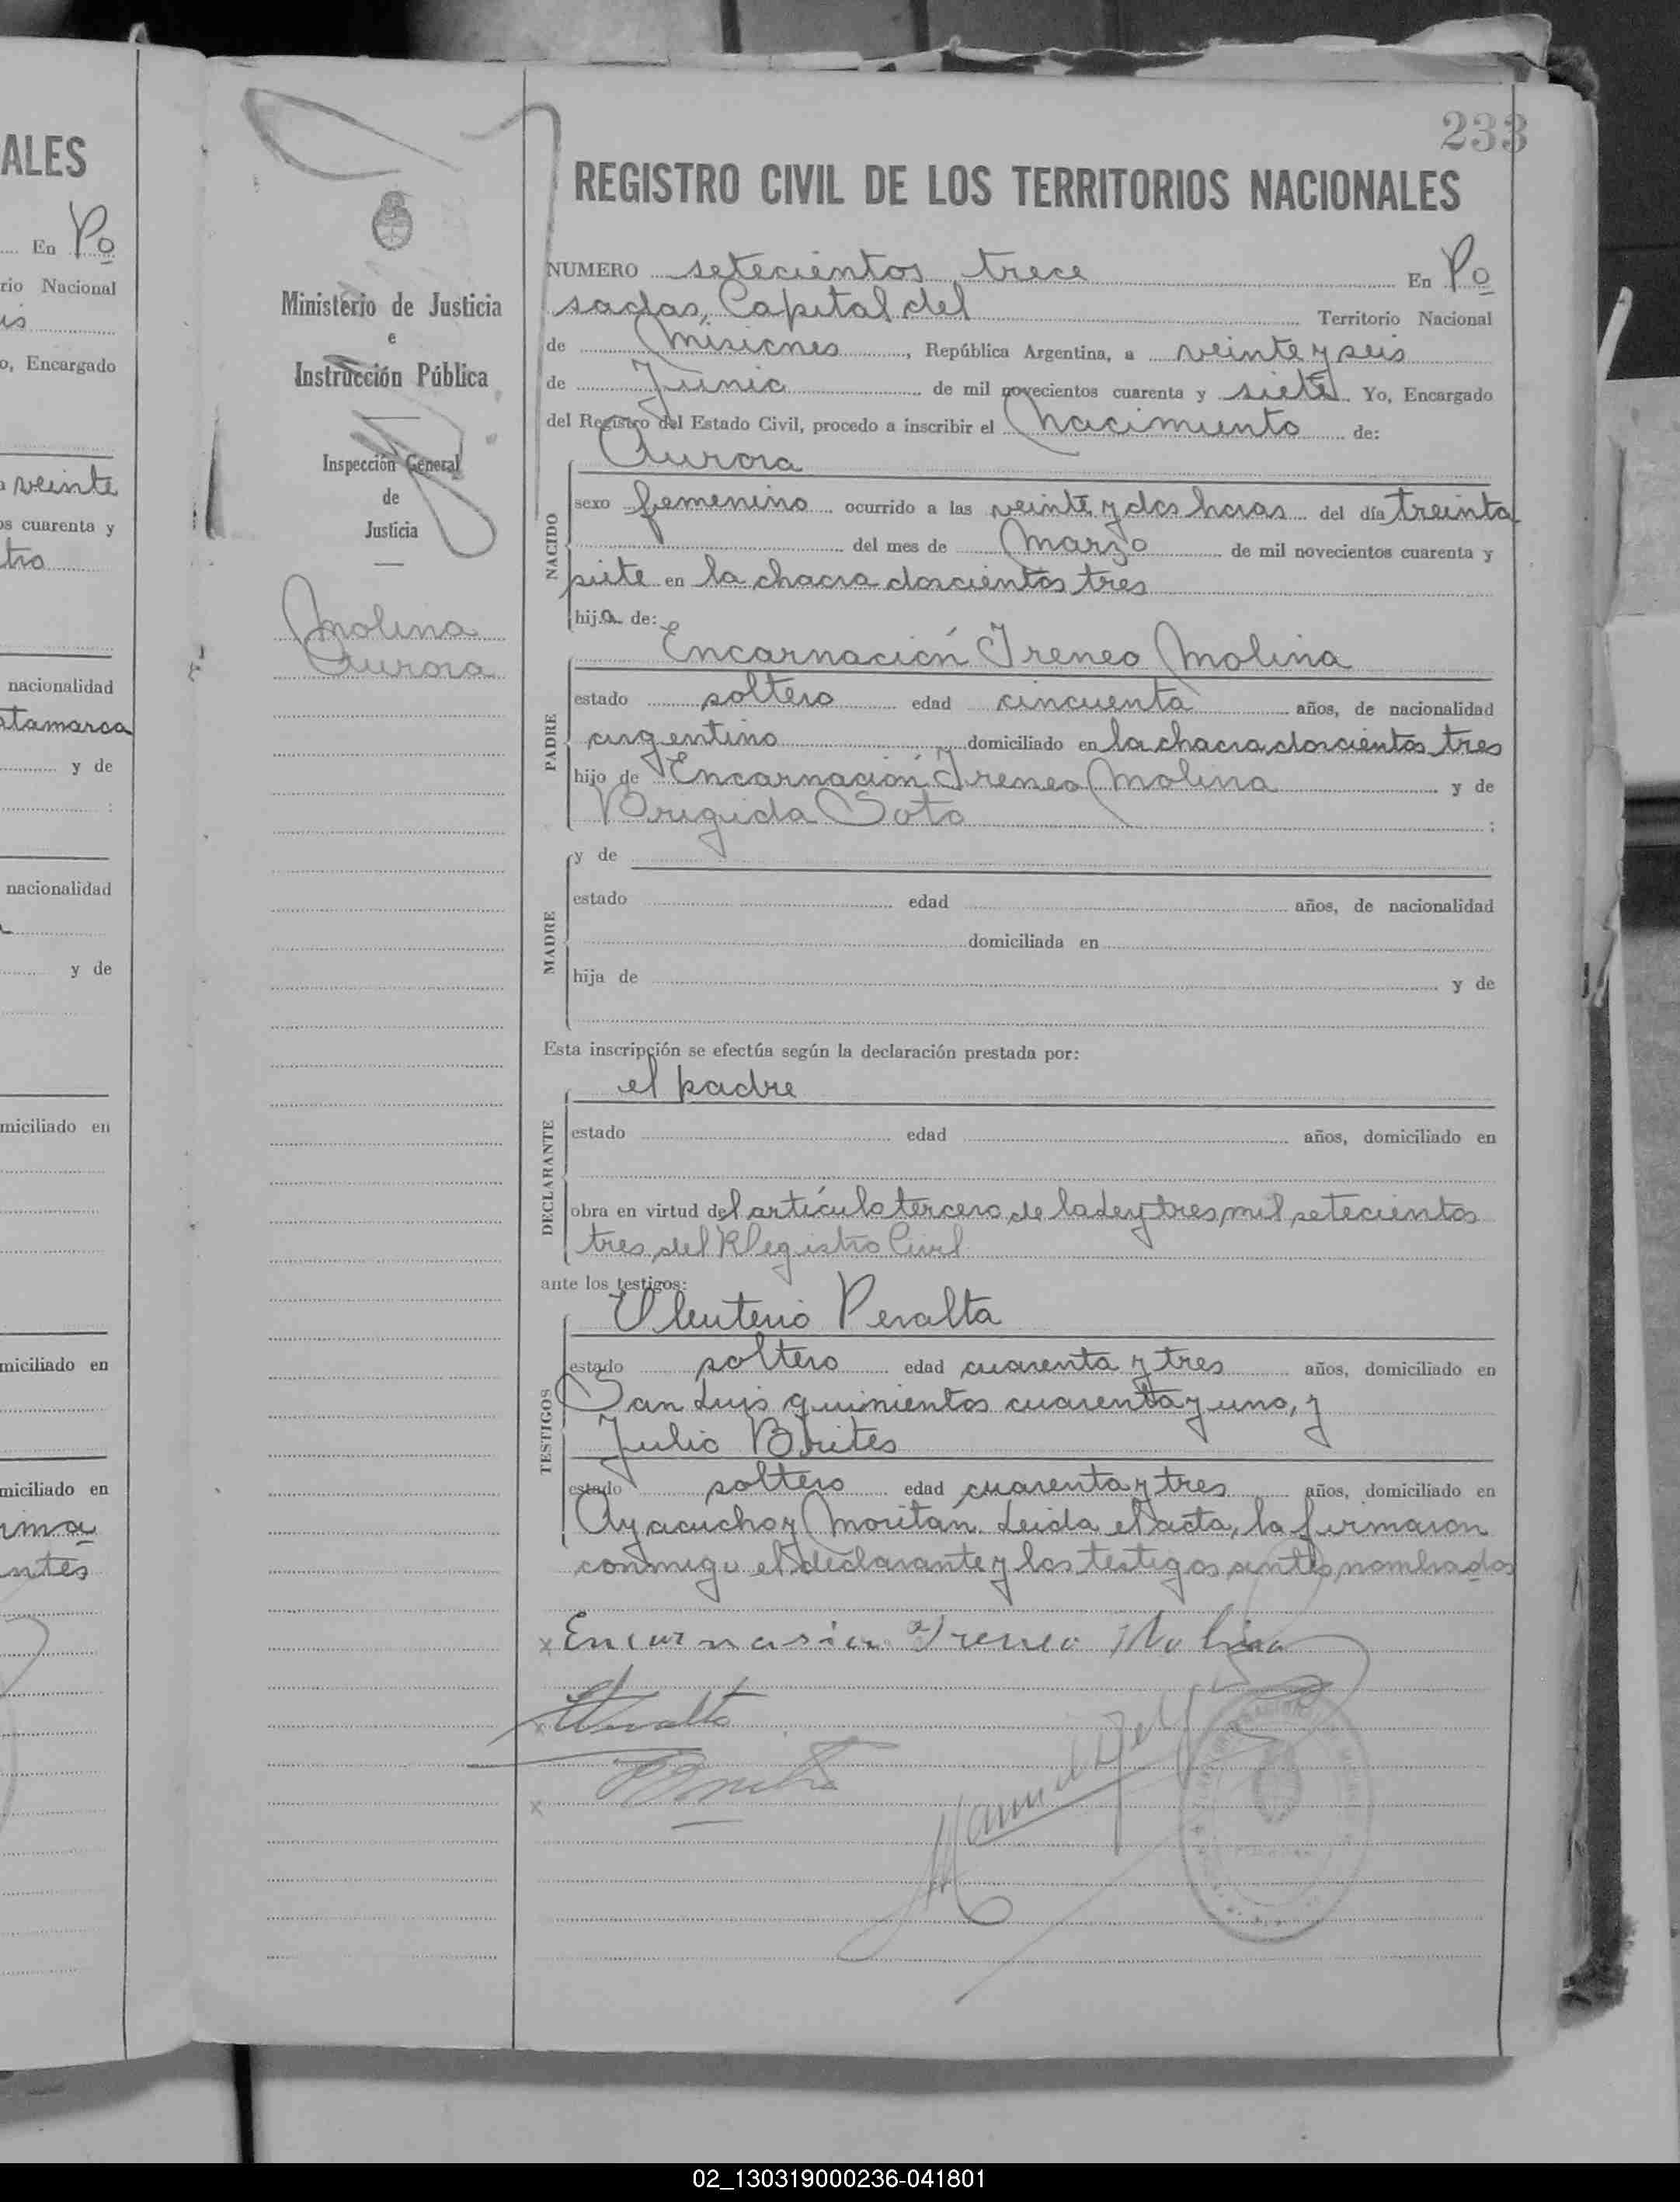 ALES
En Po
rio Nacional
is
o, Encargado
a veinte
os cuarenta y
tro
nacionalidad
atamarca
y de
nacionalidad
y de
miciliado en
miciliado en
miciliado en
rma
ntes
Ministerio de Justicia
e
Instrucción Pública
Inspección General
de
Justicia
Molina
Aurora
233
REGISTRO CIVIL DE LOS TERRITORIOS NACIONALES
NUMERO setecientos trece En Po
sadas, Capital del Territorio Nacional
de Misiones, República Argentina, a veinte y seis
de Junio de mil novecientos cuarenta y siete Yo, Encargado
del Registro del Estado Civil, procedo a inscribir el nacimiento de:
Aurora
NACIDO
sexo femenino ocurrido a las veinte y dos horas del día treinta
del mes de Marzo de mil novecientos cuarenta y
siete en la chacra doscientos tres
hija de:
Encarnación Ireneo Molina
PADRE
estado soltero edad cincuenta años, de nacionalidad
argentino domiciliado en la chacra doscientos tres
hijo de Encarnación Ireneo Molina y de
Brigida Soto ;
MADRE
y de
estado edad años, de nacionalidad
domiciliada en
hija de y de
Esta inscripción se efectúa según la declaración prestada por:
el padre
DECLARANTE
estado edad años, domiciliado en
obra en virtud del artículo tercero de la Ley tres mil setecientos
tres del Registro Civil
ante los testigos:
Eleuterio Peralta
TESTIGOS
estado soltero edad cuarenta y tres años, domiciliado en
San Luis quinientos cuarenta y uno, y
Julio Brites
estado soltero edad cuarenta y tres años, domiciliado en
Ayacucho y Moritán. Leida el acta, la firmaron
conmigo el declarante y los testigos antes nombrados
x Encarnasion Ireneo Molina
x EPeralta
x JBrites
Manuel
02_130319000236-041801